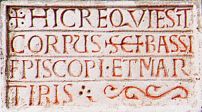 ✠ HIC REQVIESIT
CORPVS SCI BASSI
EPISCOPI ET MAR
TIRIS